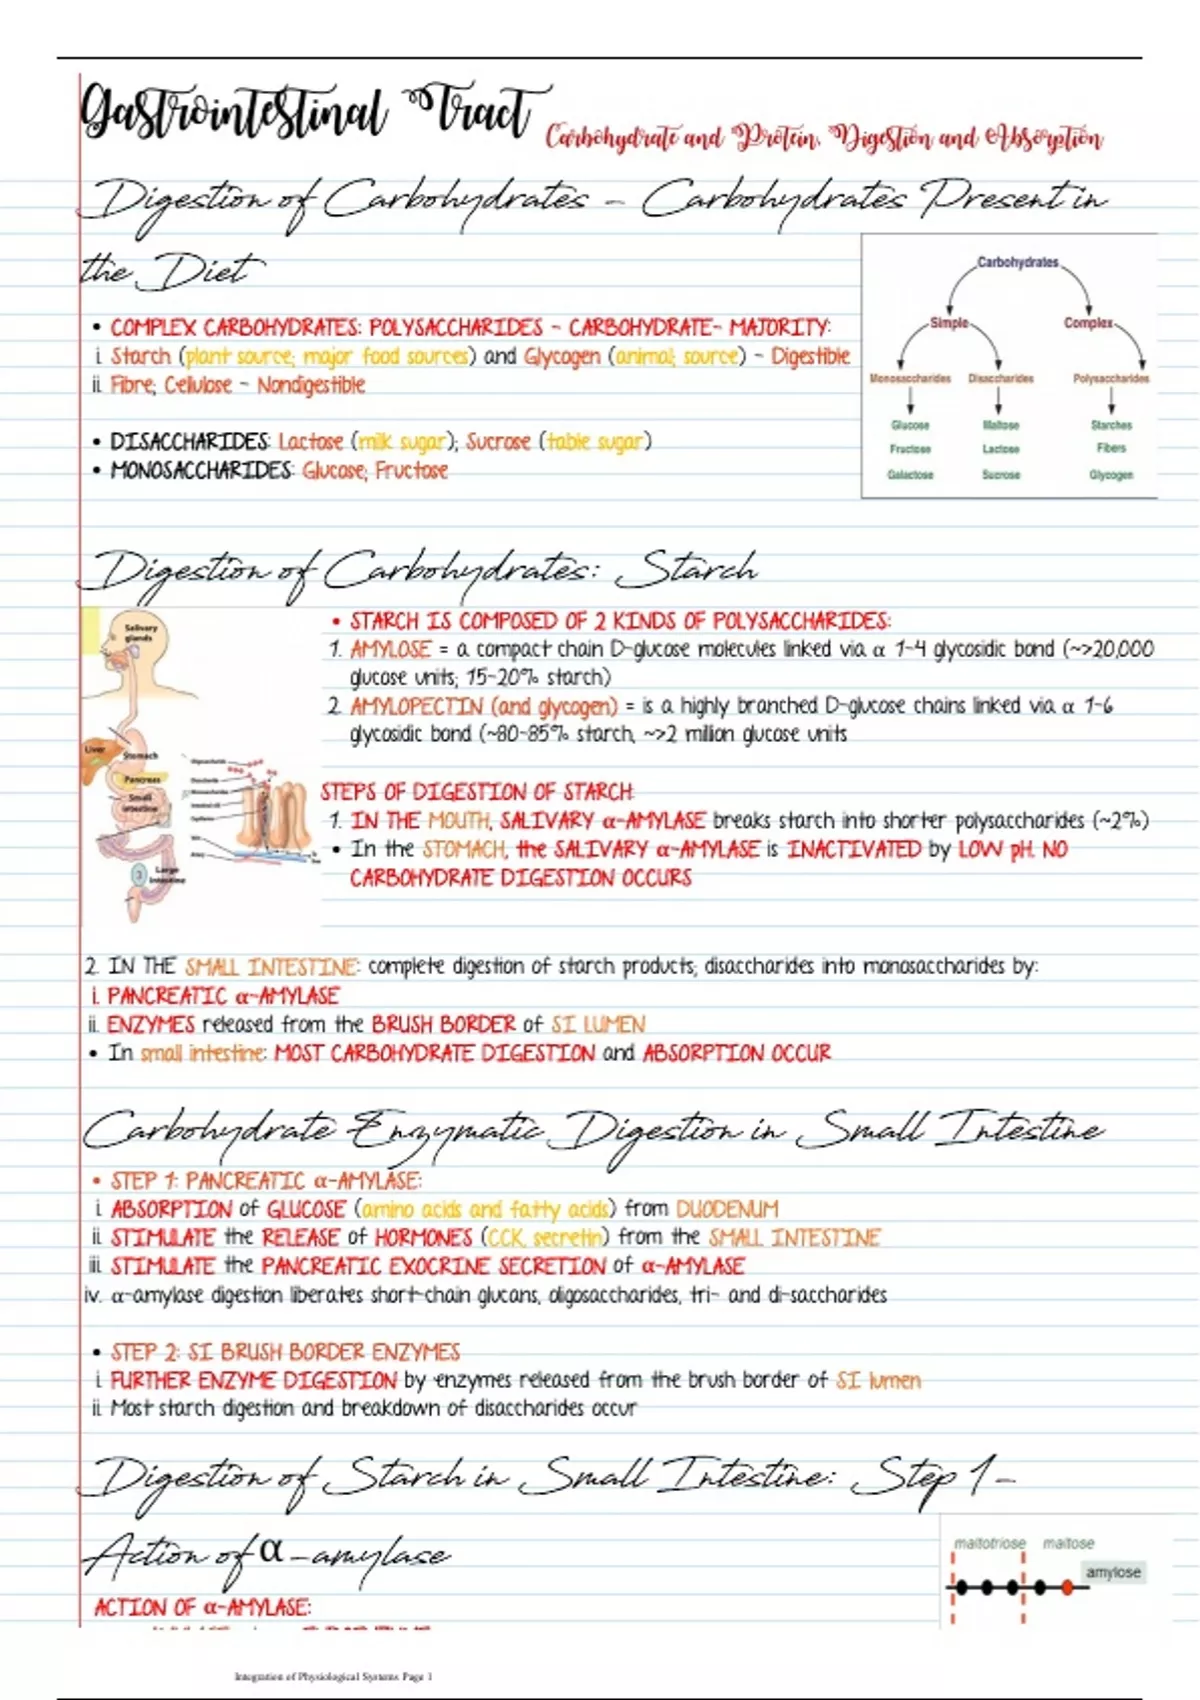 Gastrointestinal Tract Carbohydrate and Protein, Digestion and Absorption
Digestion of Carbohydrates - Carbohydrates Present in
the Diet
• COMPLEX CARBOHYDRATES: POLYSACCHARIDES - CARBOHYDRATE- MAJORITY:
i. Starch (plant source; major food sources) and Glycogen (animal; source) - Digestible
ii. Fibre; Cellulose - Nondigestible
• DISACCHARIDES: Lactose (milk sugar); Sucrose (table sugar)
• MONOSACCHARIDES: Glucose; Fructose
Carbohydrates
Simple Complex
Monosaccharides Disaccharides Polysaccharides
Glucose Maltose Starches
Fructose Lactose Fibers
Galactose Sucrose Glycogen
Digestion of Carbohydrates: Starch
Salivary
glands
Liver
Stomach
Pancreas
Small
intestine
Large
intestine
• STARCH IS COMPOSED OF 2 KINDS OF POLYSACCHARIDES:
1. AMYLOSE = a compact chain D-glucose molecules linked via α 1-4 glycosidic bond (~>20,000
glucose units; 15-20% starch)
2. AMYLOPECTIN (and glycogen) = is a highly branched D-glucose chains linked via α 1-6
glycosidic bond (~80-85% starch, ~>2 million glucose units
STEPS OF DIGESTION OF STARCH:
1. IN THE MOUTH, SALIVARY α-AMYLASE breaks starch into shorter polysaccharides (~2%)
• In the STOMACH, the SALIVARY α-AMYLASE is INACTIVATED by LOW pH. NO
CARBOHYDRATE DIGESTION OCCURS
2. IN THE SMALL INTESTINE: complete digestion of starch products; disaccharides into monosaccharides by:
i. PANCREATIC α-AMYLASE
ii. ENZYMES released from the BRUSH BORDER of SI LUMEN
• In small intestine: MOST CARBOHYDRATE DIGESTION and ABSORPTION OCCUR
Carbohydrate Enzymatic Digestion in Small Intestine
• STEP 1: PANCREATIC α-AMYLASE:
i. ABSORPTION of GLUCOSE (amino acids and fatty acids) from DUODENUM
ii. STIMULATE the RELEASE of HORMONES (CCK, secretin) from the SMALL INTESTINE
iii. STIMULATE the PANCREATIC EXOCRINE SECRETION of α-AMYLASE
iv. α-amylase digestion liberates short-chain glucans, oligosaccharides, tri- and di-saccharides
• STEP 2: SI BRUSH BORDER ENZYMES
i. FURTHER ENZYME DIGESTION by enzymes released from the brush border of SI lumen
ii. Most starch digestion and breakdown of disaccharides occur
Digestion of Starch in Small Intestine: Step 1 -
Action of α -amylase
maltotriose maltose
amylose
ACTION OF α-AMYLASE:
Integration of Physiological Systems Page 1